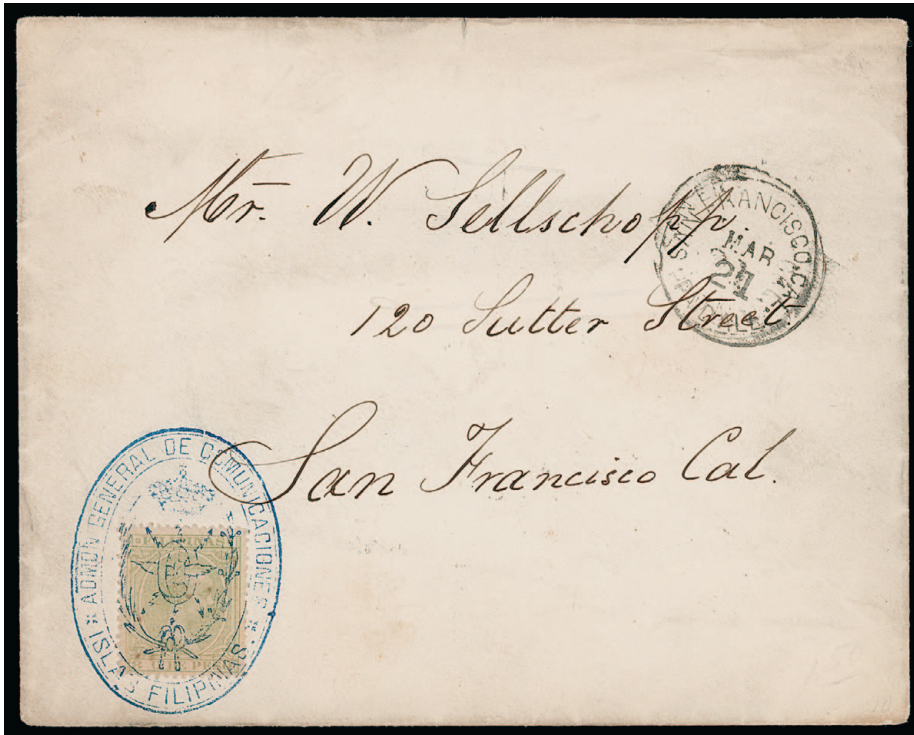 Mr. W. Sellschopp
120 Sutter Street.
San Francisco Cal.
SAN FRANCISCO, CAL.
MAR
21
ADMON GENERAL DE COMUNICACIONES
ISLAS FILIPINAS.
FILIPINAS